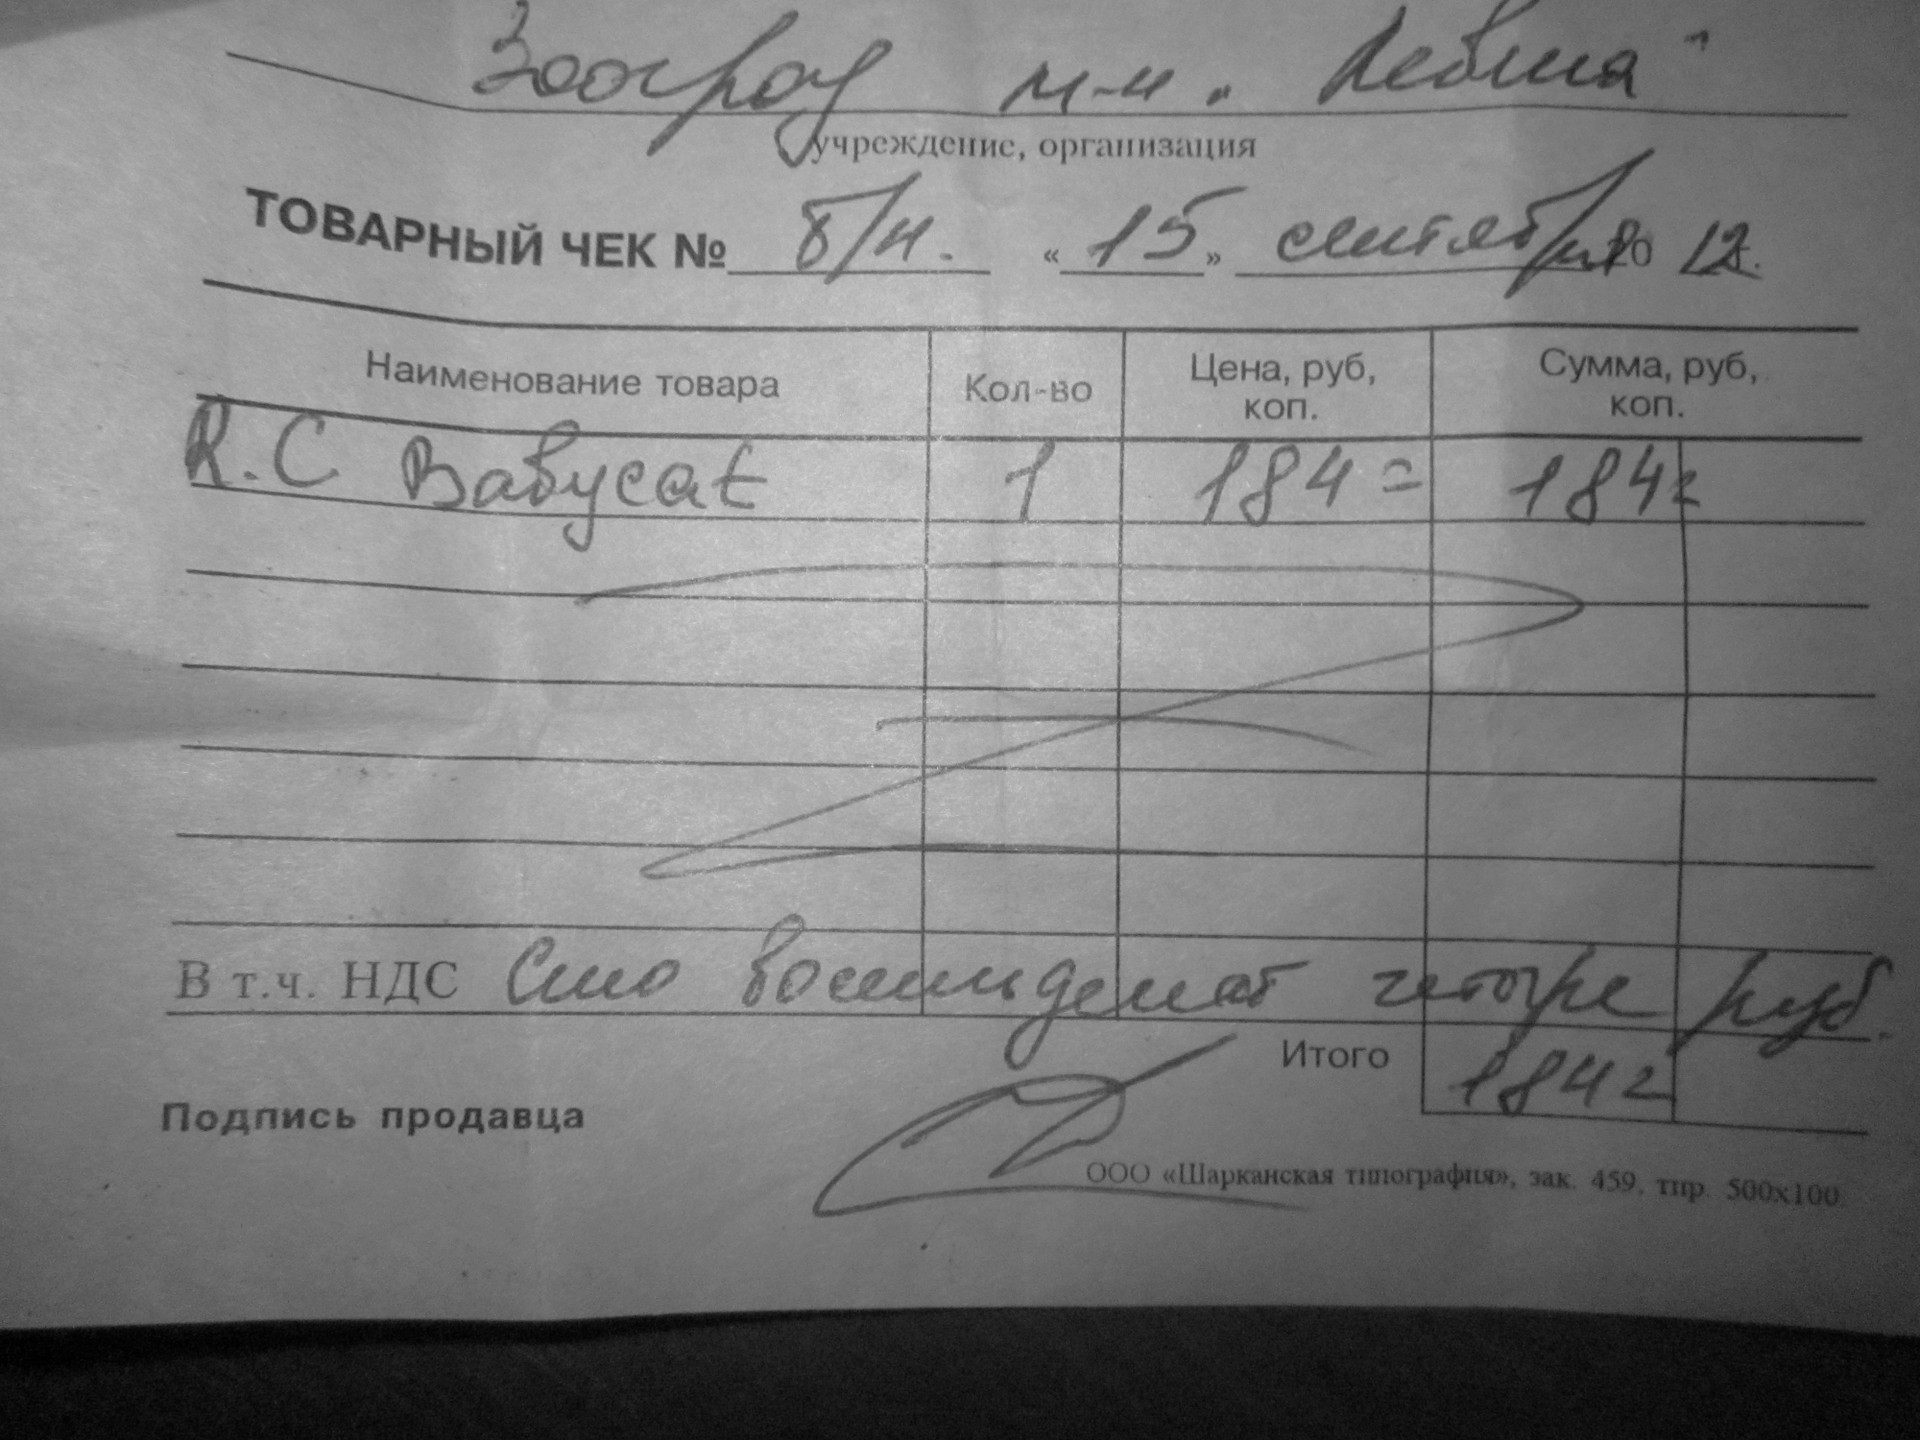 Зоогрод м-н "Левша"
учреждение, организация
ТОВАРНЫЙ ЧЕК № б/н. «15» сентября 2012г.
Наименование товара Кол-во Цена, руб, коп. Сумма, руб, коп.
R.C Babycat 1 184= 184=
В т.ч. НДС Сто восемьдесят четыре руб.
Итого 184=
Подпись продавца
ООО «Шарканская типография», зак. 459, тир. 500х100.